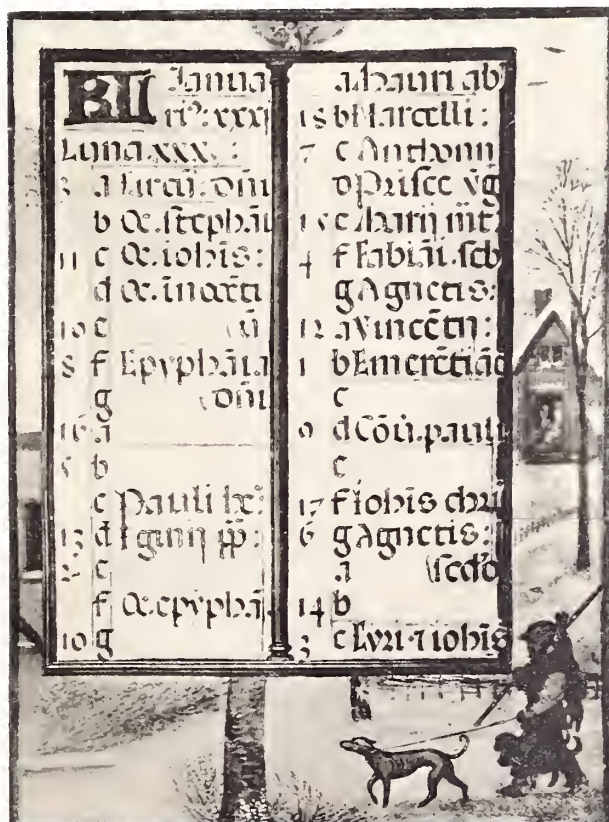 KL Ianua
ri⁹: xxxj
Luna. xxx.:
3 a Circū: dn̄i
b Oc. stephāi
11 c Oc. iohīs:
d Oc. īnocēti
10 e ū
8 f Epyphāīa
g dn̄i
16 a
5 b
c Pauli he:
13 d I ginij pp̄:
2 e
f Oc. epyphāi
10 g
a Mauri ab
18 b Marcelli:
7 c Anthonii
d Prisce vg
15 e Marij mt̄
4 f Fabiāi. seb
g Agnetis:
12 a Vincētij:
1 b Emerētiāe
c
9 d Cōū. pauli
e
17 f Iohīs chri
6 g Agnetis:
a secdo
14 b
3 c Cyri ⁊ iohīs